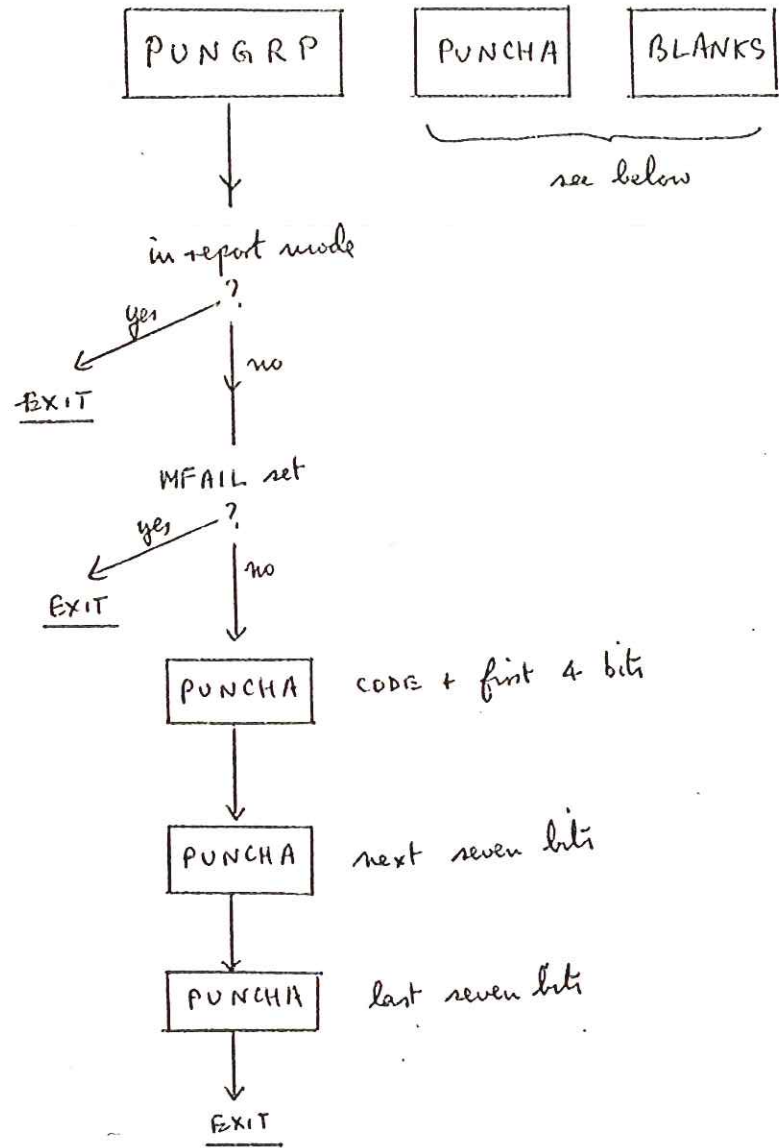 PUNGRP PUNCHA BLANKS
see below
in report mode
?
yes
no
EXIT
MFAIL set
?
yes
no
EXIT
PUNCHA CODE + first 4 bits
PUNCHA next seven bits
PUNCHA last seven bits
EXIT